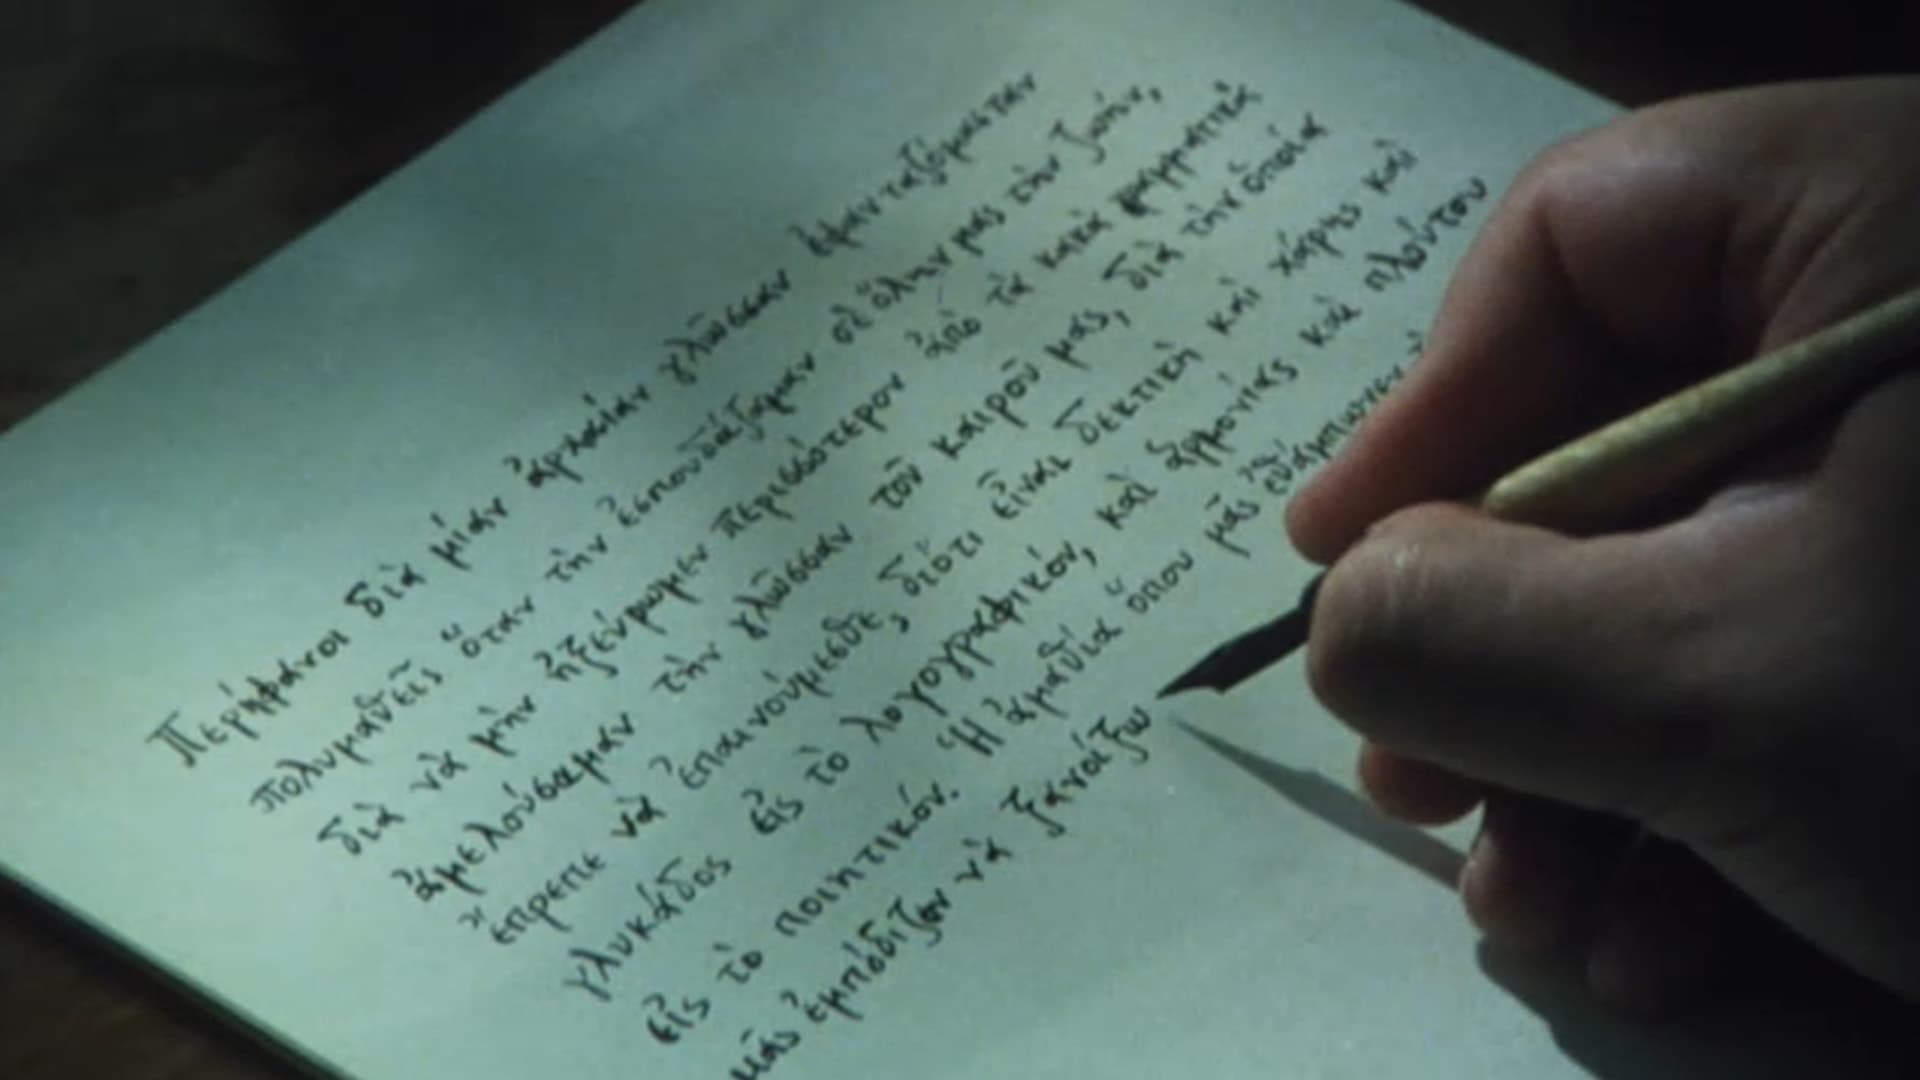 Περήφανοι διὰ μίαν ἀρχαίαν γλῶσσαν ἐφανταζόμασταν
πολυμαθεῖς ὅταν τὴν ἐσπουδάζαμαν σὲ ὅλην μας τὴν ζωήν,
διὰ νὰ μὴν ἠξεύρωμεν περισσότερον ἀπὸ τὰ κακὰ γραμματικά
ἀμελούσαμαν τὴν γλῶσσαν τοῦ καιροῦ μας, διὰ τὴν ὁποία
ἔπρεπε νὰ ἐπαινούμεσθε, διότι εἶναι δεκτικὴ καὶ χάρις καὶ
γλυκάδος εἰς τὸ λογογραφικόν, καὶ ἁρμονίας καὶ πλούτου
εἰς τὸ ποιητικόν. Ἡ ἀμαθία ὅπου μᾶς
μᾶς ἐμπόδιζεν νὰ